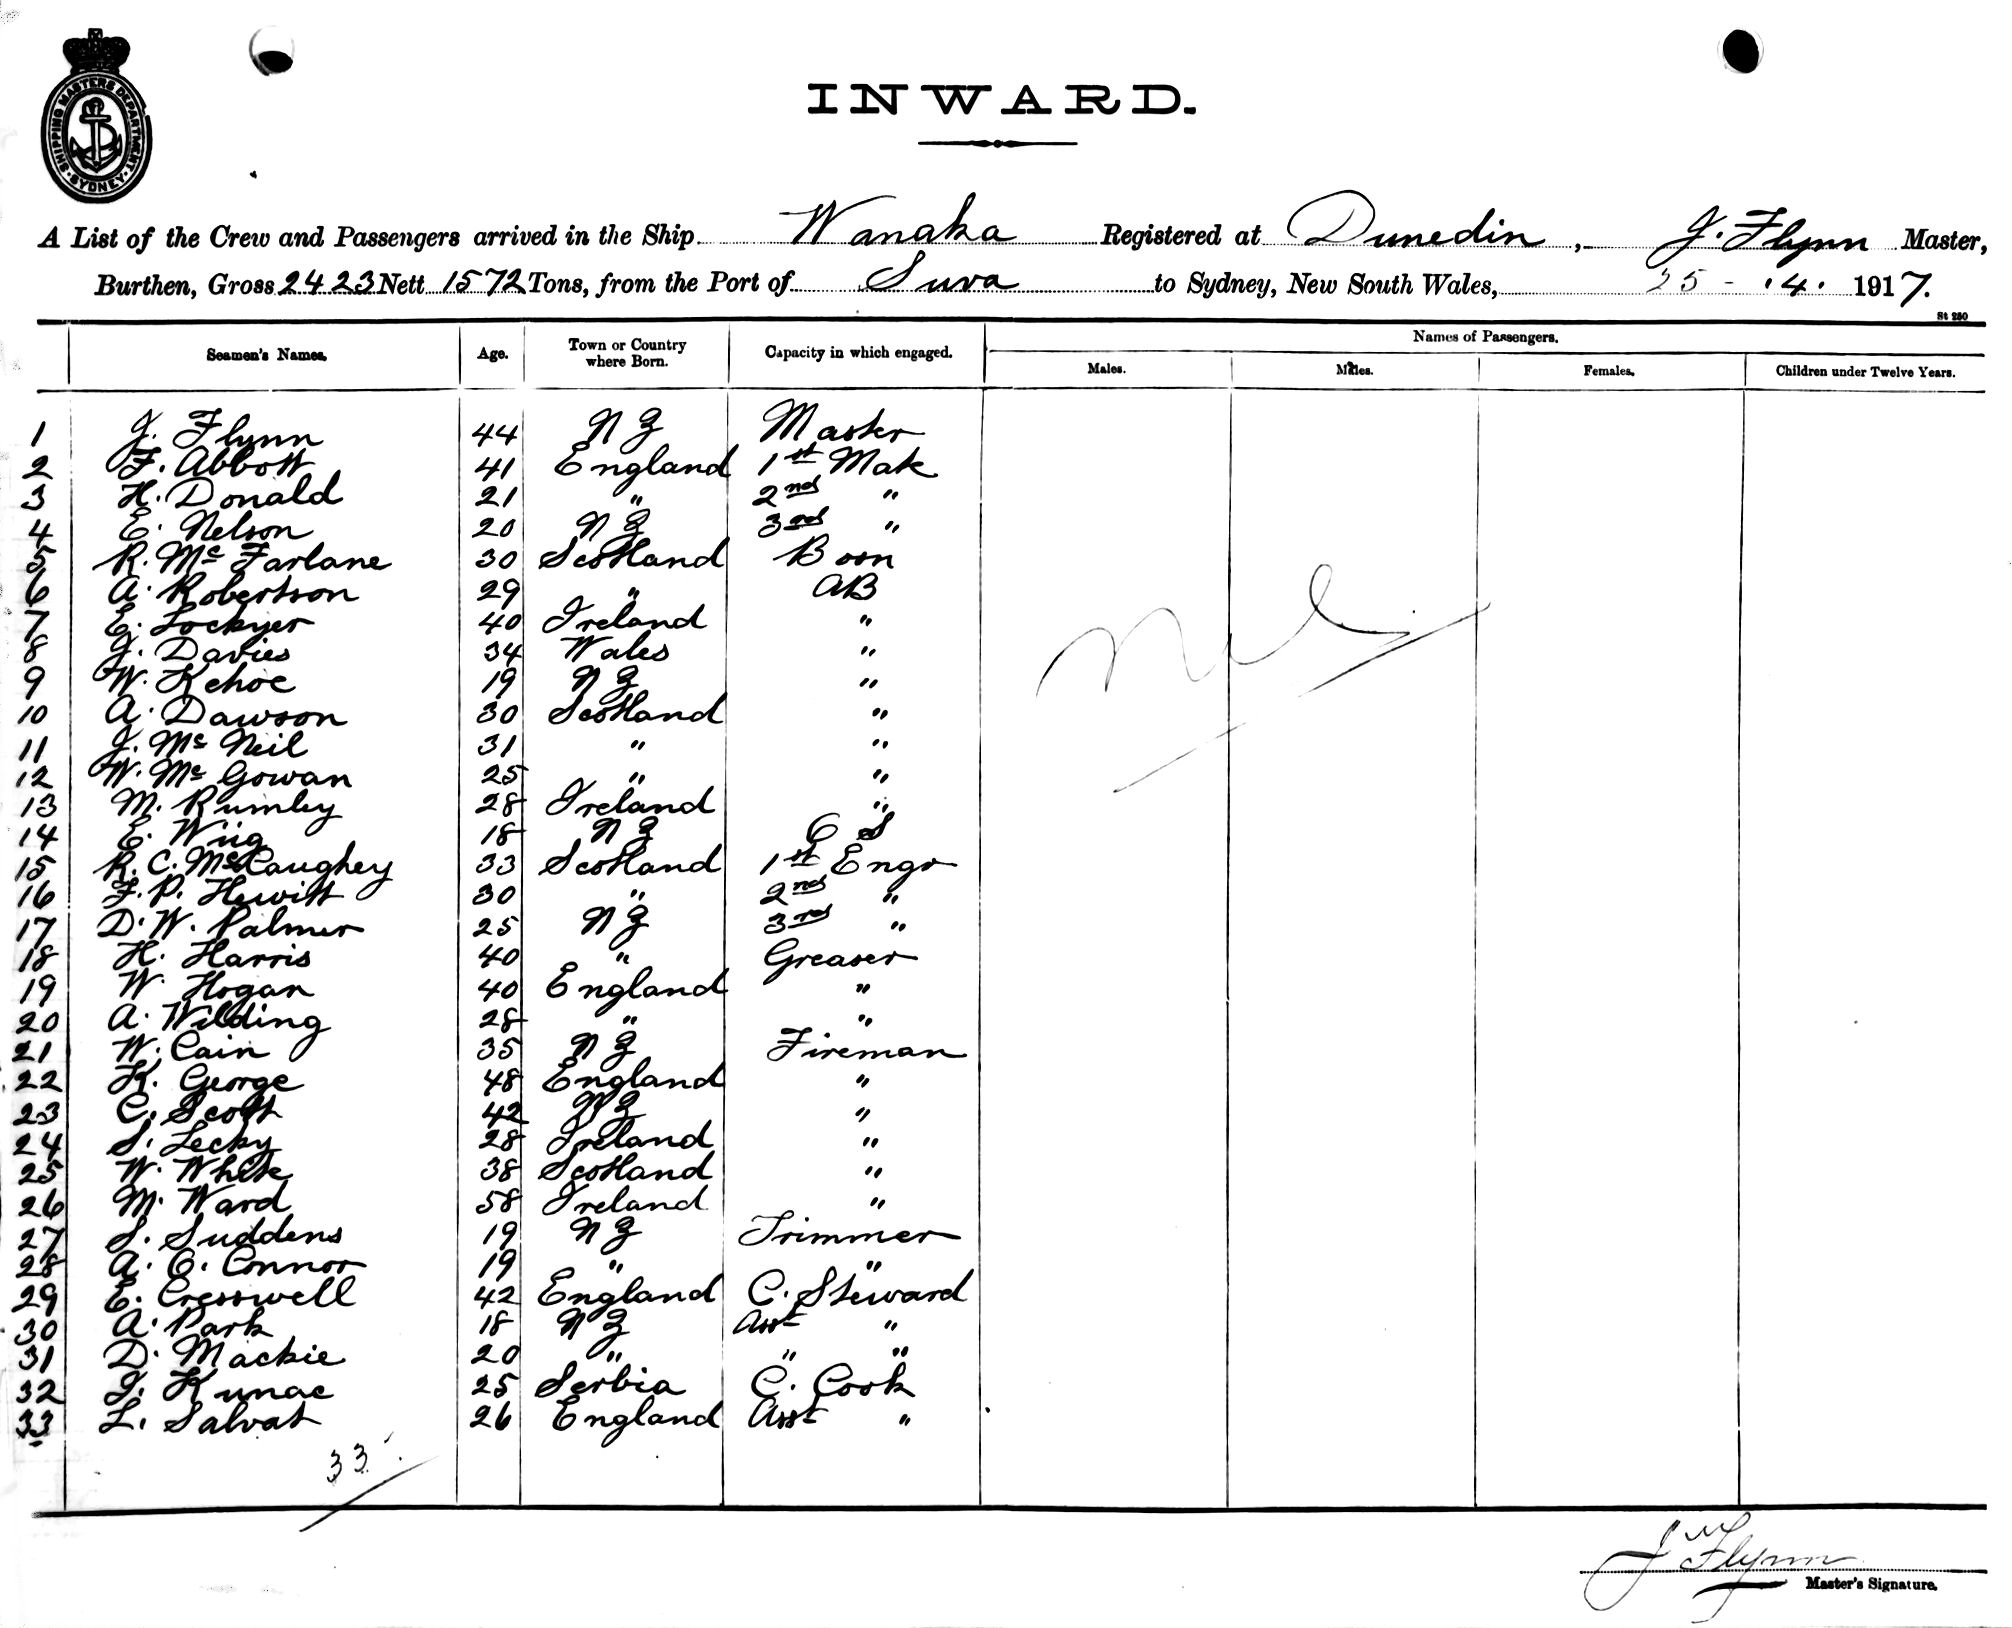 SHIPPING MASTERS DEPARTMENT · SYDNEY ·
INWARD.
A List of the Crew and Passengers arrived in the Ship Wanaka Registered at Dunedin, J. Flynn Master,
Burthen, Gross 2423 Nett 1572 Tons, from the Port of Suva to Sydney, New South Wales, 25 - .4. 1917.
St 280
Seamen's Names. Age. Town or Country where Born. Capacity in which engaged. Names of Passengers.
Males. Males. Females. Children under Twelve Years.
1 J. Flynn 44 N Z Master
2 F. Abbott 41 England 1st Mate
3 H. Donald 21 " 2nd "
4 E. Nelson 20 N Z 3rd "
5 R. Mc Farlane 30 Scotland Bosn
6 A. Robertson 29 " AB
7 E. Lockyer 40 Ireland "
8 J. Davies 34 Wales "
9 W. Kehoe 19 N Z "
10 A. Dawson 30 Scotland "
11 J. Mc Neil 31 " "
12 W. Mc Gowan 25 " "
13 M. Rumley 28 Ireland "
14 E. Wiig 18 N Z O S
15 R. C. McCaughey 33 Scotland 1st Engr
16 F. P. Hewitt 30 " 2nd "
17 D. W. Palmer 25 N Z 3rd "
18 H. Harris 40 " Greaser
19 W. Hogan 40 England "
20 A. Wilding 28 " "
21 W. Cain 35 N Z Fireman
22 K. George 48 England "
23 C. Scott 42 N Z "
24 S. Lecky 28 Ireland "
25 W. White 38 Scotland "
26 M. Ward 58 Ireland "
27 S. Suddens 19 N Z Trimmer
28 A. O. Connor 19 " "
29 E. Cresswell 42 England C. Steward
30 A. Park 18 N Z Asst "
31 D. Mackie 20 " " "
32 J. Kunac 25 Serbia C. Cook
33 L. Salvat 26 England Asst "
Nil
33
J Flynn
Master's Signature.